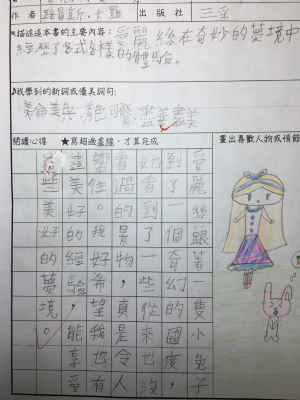 作者 出版社 三采
描述這本書的主要內容：愛麗絲在奇妙的夢境中
享受了各式各樣的體驗。
我學到的新詞或優美詞句：
美侖美奐、盡善盡美
閱讀心得 ★寫超過畫線，才算完成
畫出喜歡人物或情節
愛麗絲跟著一隻小兔子
到了一個奇幻的國度，
有到了一些從來也沒
有過的是物，真是令人
嚮往。我好希望我也有
這美好的經驗，能享受
些美好的夢境。